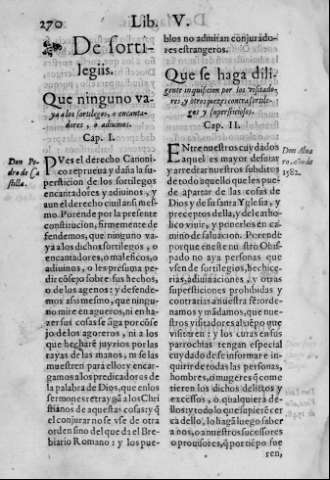 270
Lib. V.
De sorti-
legiis.
Que ninguno va-
ya a los sortilegos, o encanta-
dores, o adiuinos.
Cap. I.
Don Pe-
dro de Ca
stilla.
PVes el derecho Canoni-
co reprueua y daña la su-
persticion de los sortilegos
encantadores y adiuinos, y
aun el derecho ciuil ansi mes-
mo. Porende por la presente
constitucion, firmemente de-
fendemos, que ninguno va-
ya a los dichos sortilegos, o
encantadores, o maleficos, o
adiuinos, o les presuma pe-
dir cõsejo sobre sus hechos,
o de los agenos y defende-
mos asi mesmo, que ningu-
no mire en agueros, ni en ha-
zer sus cosas se aga por cõse
jo de los agoreros, ni a los
que hechare juyzios por las
rayas de las manos, ni se las
muestren para ello y encar-
gamos a los predicadores de
la palabra de Dios, que en los
sermones retraygã a los Chri
stianos de aquestas cosas: y q̃
el conjurar no se vse de otra
orden sino del que da el Bre-
biario Romano: y los pue-
blos no admitan conjurado-
res estrangeros.
Que se haga dili-
gente inquisicion por los visitado-
res y otros juezes contra sortile-
gos y supersticiosos.
Cap. II.
Don Alua
ro. año de
1582.
ENtre nuestros cuydados
aquel es mayor desuiar
y arredrar nuestros subditos
de todo aquello que les pue-
de apartar de las cosas de
Dios y de su santa Yglesia, y
preceptos della, y de el arbo-
licovinir, y ponerles en ca-
mino de saluacion. Porende
porque en este nuestro Obis-
pado no aya personas que
vsen de sortilegios, hechize-
rias, adiuinaciones, y otras
supersticiones prohibidas y
contrarias a nuestra fe: orde-
namos y mãdamos, que nue-
stros visitadores alti ẽpo que
visitaren: y los curas en sus
parrochias tengan especial
cuydado de se informar e in-
quirir de todas las personas,
hombres, o mugeres q̃ come
tieren los dichos delictos y
excessos, o qualquiera de-
llos: y todo lo que supierẽ cer
ca dello, lo hagã luego saber
a nos, o a nuestros sucessores
o prouisores, q̃ por tiẽpo fue
ren,